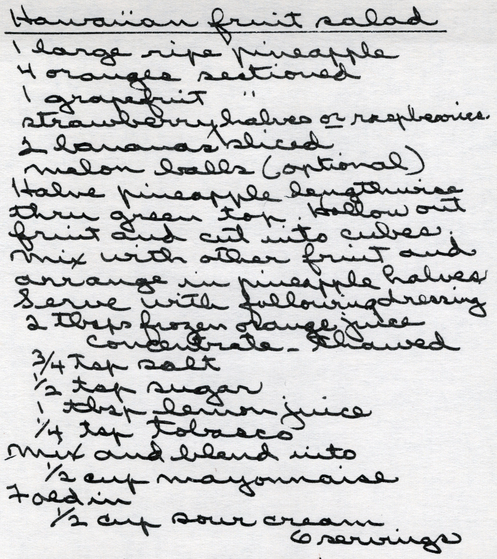 Hawaiian fruit salad
1 large ripe pineapple
4 oranges sectioned
1 grapefruit "
strawberry halves or raspberries.
2 bananas sliced
melon balls (optional)
Halve pineapple lengthwise
thru green top. Hollow out
fruit and cut into cubes.
Mix with other fruit and
arrange in pineapple halves.
Serve with following dressing
2 tbsps frozen orange juice
concentrate - thawed
3/4 tsp salt
1/2 tsp sugar
1 tbsp lemon juice
1/4 tsp tobasco
Mix and blend into
1/2 cup mayonnaise
Fold in
1/2 cup sour cream
6 servings